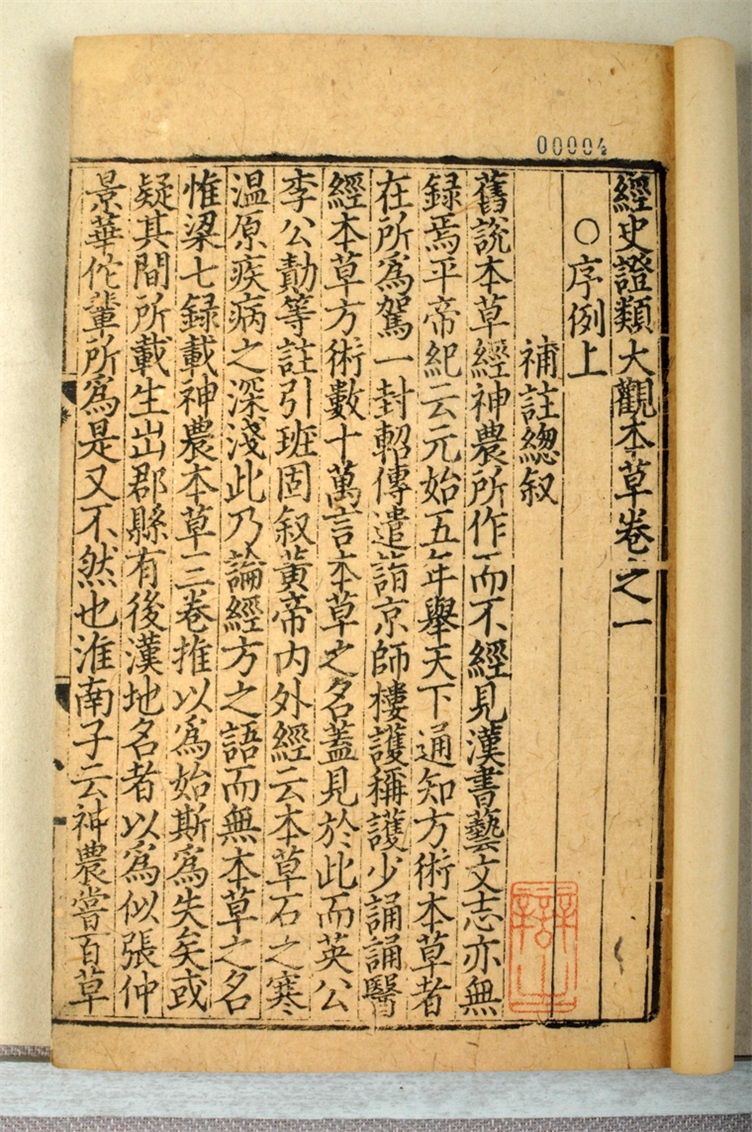 00004
經史證類大觀本草卷之一
○序例上
補註總叙
舊說本草經神農所作而不經見漢書藝文志亦無
録焉平帝紀云元始五年舉天下通知方術本草者
在所爲駕一封軺傳遣詣京師樓護稱護少誦誦醫
經本草方術數十萬言本草之名蓋見於此而英公
李公勣等註引班固叙黄帝内外經云本草石之寒
温原疾病之深淺此乃論經方之語而無本草之名
惟梁七録載神農本草三卷推以爲始斯爲失矣或
疑其間所載生出郡縣有後漢地名者以爲似張仲
景華佗輩所爲是又不然也淮南子云神農嘗百草